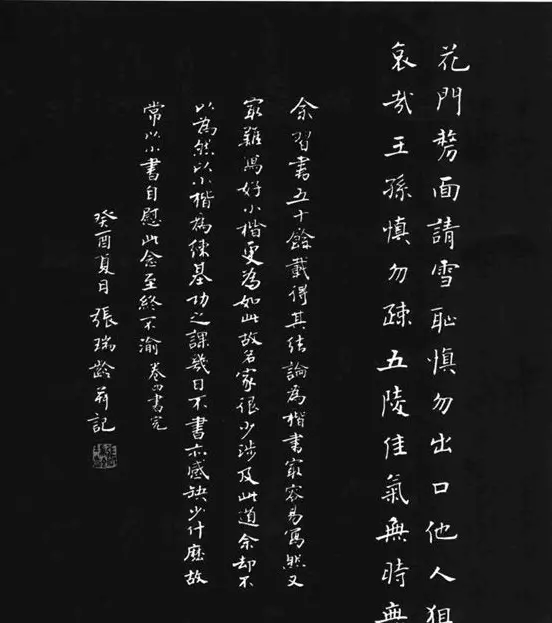 花門剺面請雪恥慎勿出口他人狙
哀哉王孫慎勿疎五陵佳氣無時無
余習書五十餘載得其结論為楷書最容易寫然又
最難寫好小楷更為如此故名家很少涉及此道余却不
以為然以小楷為練基功之課幾日不書亦感缺少什麽故
常以小書自慰此念至終不渝 卷四書完
癸酉夏日 張瑞齡并記